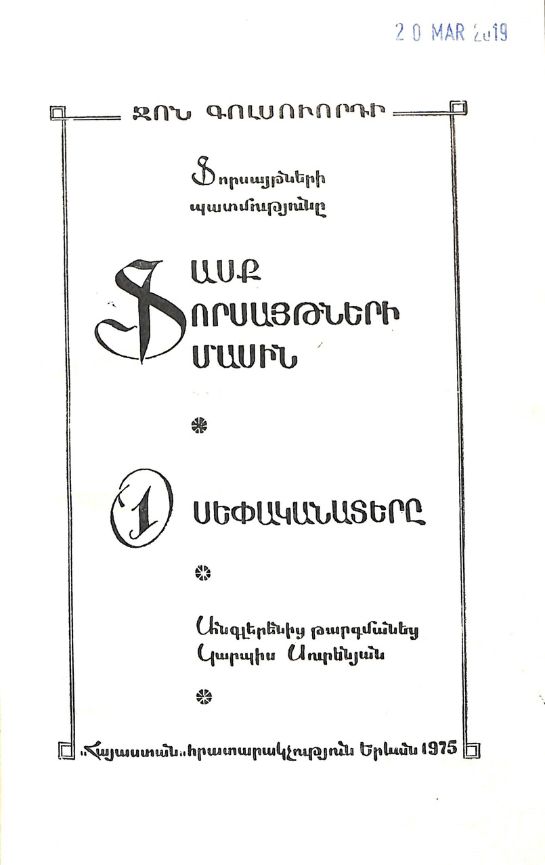 20 MAR 2019
ՋՈՆ ԳՈԼՍՈՒՈՐԴԻ
Ֆորսայթների
պատմությունը
ԱՍՔ
ՖՈՐՍԱՅԹՆԵՐԻ
ՄԱՍԻՆ
1 ՍԵՓԱԿԱՆԱՏԵՐԸ
Անգլերենից թարգմանեց
Կարպիս Սուրենյան
„Հայաստան„ հրատարակչություն Երևան 1975